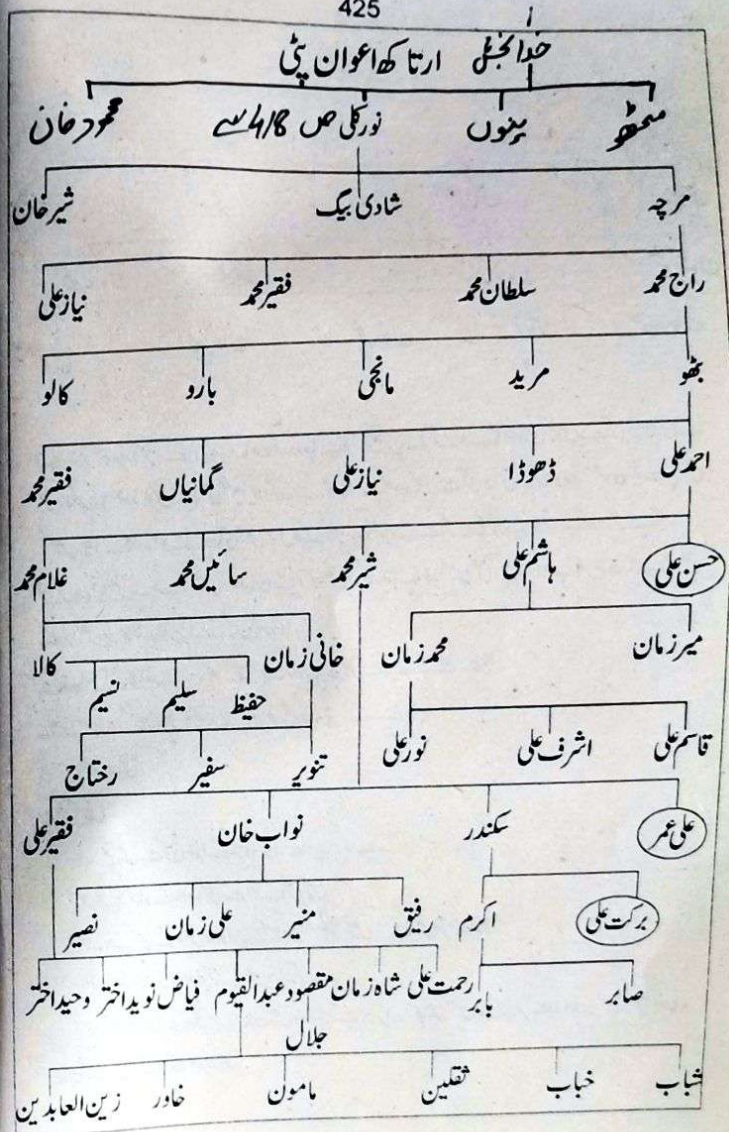 425
خدا بخش ارتا کھ اعوان پٹی
مٹھو پنوں نور کلی ص 418 سے محمود خان
مرچہ شادی بیگ شیر خان
راج محمد سلطان محمد فقیر محمد نیاز علی
بٹھو مرید مانجی بارو کالو
احمد علی ڈھوڈا نیاز علی گمانیاں فقیر محمد
حسن علی ہاشم علی شیر محمد سائیں محمد غلام محمد
میر زمان محمد زمان خانی زمان کالا
حفیظ سلیم نسیم
قاسم علی اشرف علی نور علی تنویر سفیر رختاج
علی عمر سکندر نواب خان فقیر علی
برکت علی اکرم رفیق منیر علی زمان نصیر
صابر بابر رحمت علی شاہ زمان مقصود عبدالقیوم فیاض نوید اختر وحید اختر
جلال
شباب خباب ثقلین مامون خاور زین العابدین